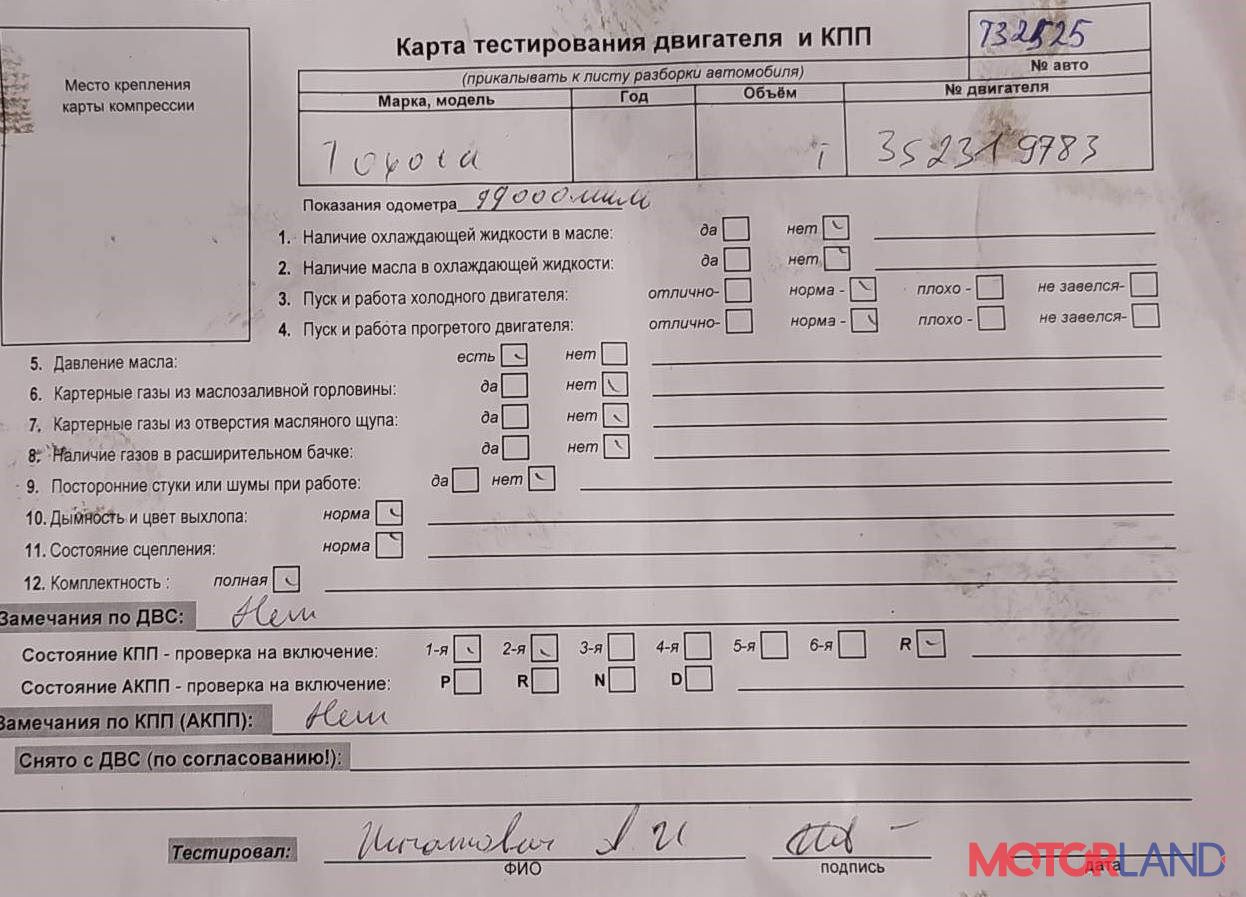 Место крепления
карты компрессии
Карта тестирования двигателя и КПП
T32525
№ авто
(прикалывать к листу разборки автомобиля)
Марка, модель Год Объём № двигателя
Toyota i 352319783
Показания одометра 99000 мили
1. Наличие охлаждающей жидкости в масле: да нет
2. Наличие масла в охлаждающей жидкости: да нет
3. Пуск и работа холодного двигателя: отлично- норма - плохо - не завелся-
4. Пуск и работа прогретого двигателя: отлично- норма - плохо - не завелся-
5. Давление масла: есть нет
6. Картерные газы из маслозаливной горловины: да нет
7. Картерные газы из отверстия масляного щупа: да нет
8. Наличие газов в расширительном бачке: да нет
9. Посторонние стуки или шумы при работе: да нет
10. Дымность и цвет выхлопа: норма
11. Состояние сцепления: норма
12. Комплектность : полная
Замечания по ДВС: Нет
Состояние КПП - проверка на включение: 1-я 2-я 3-я 4-я 5-я 6-я R
Состояние АКПП - проверка на включение: P R N D
Замечания по КПП (АКПП): Нет
Снято с ДВС (по согласованию!):
Тестировал: Игнатович А И
ФИО подпись дата
MOTORLAND